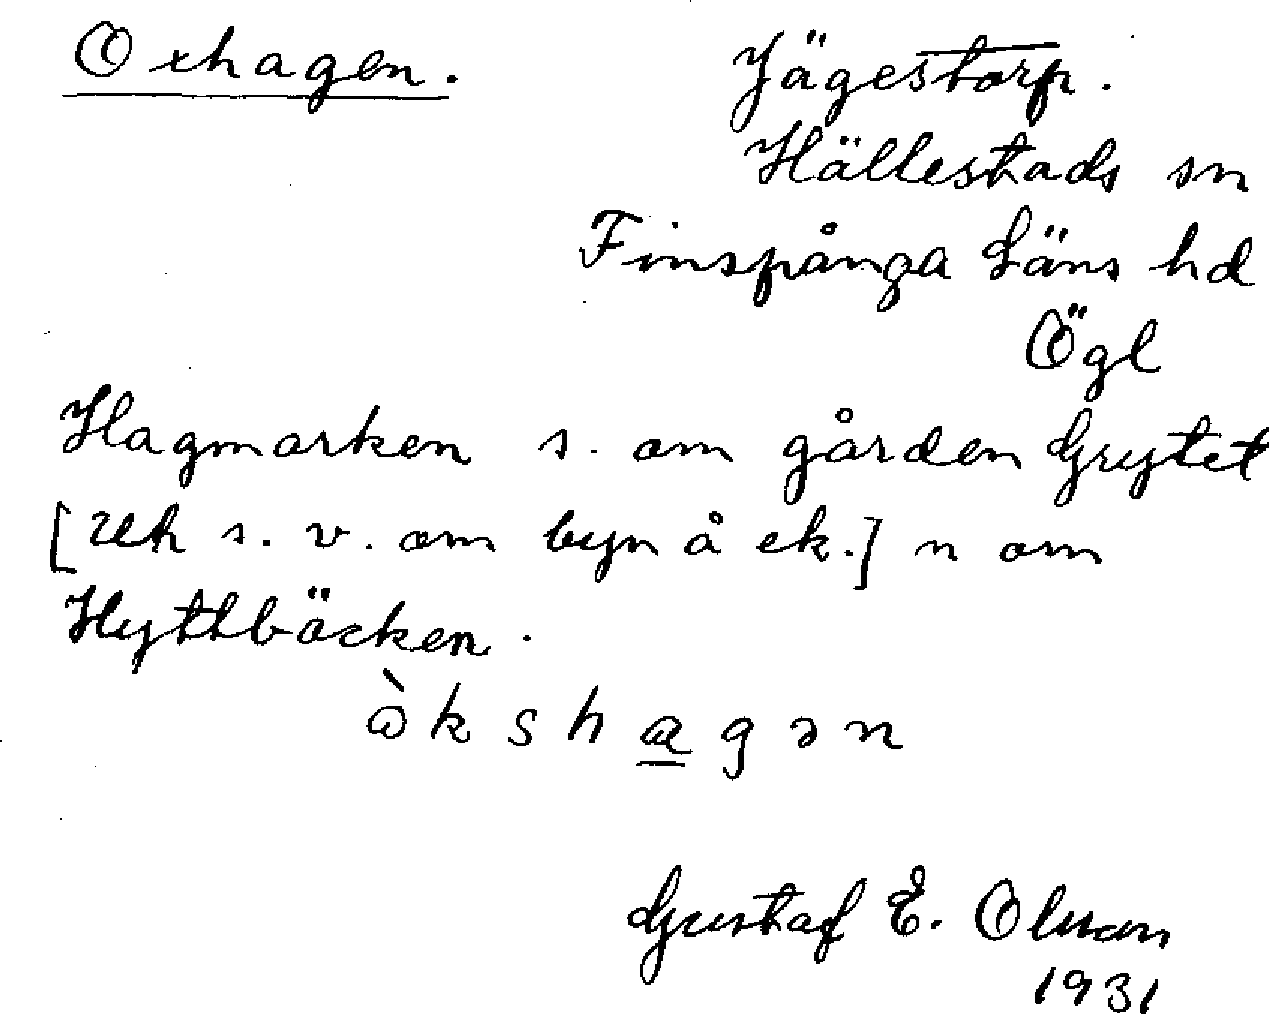 Oxhagen.
Jägestorp.
Hällestads sn
Finspånga Läns hd
Ögl
Hagmarken s. om gården Grytet
[s. v. om byn å ek.] n om
Hyttbäcken.
òkshagən
Gustaf E. Olsson
1931